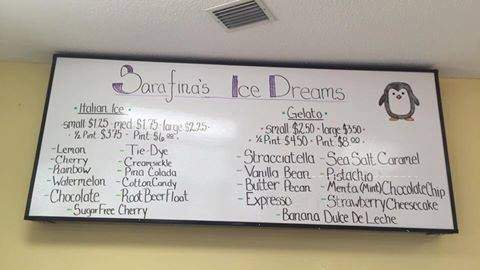 Sarafina's Ice Dreams
• Italian Ice •
small $1.25 • med. $1.75 • large $2.25 •
½ Pint $3.75 • Pint $6.00 •
- Lemon
- Cherry
- Rainbow
- Watermelon
- Chocolate
- Sugar Free Cherry
- Tie-Dye
- Creamsickle
- Pina Colada
- Cotton Candy
- Root Beer Float
• Gelato •
• small $2.50 • large $3.50 •
• ½ Pint $4.50 • Pint $8.00 •
- Stracciatella
- Vanilla Bean
- Butter Pecan
- Expresso
- Sea Salt Caramel
- Pistachio
- Menta (Mint) Chocolate Chip
- Strawberry Cheesecake
- Banana Dulce De Leche